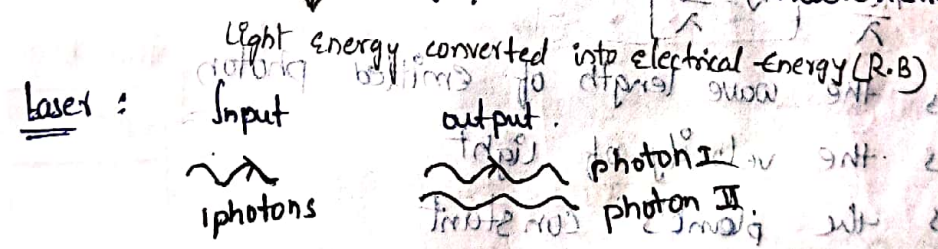 Light Energy converted into electrical Energy (R.B)
Laser :
Input output.
1photons photon I
photon II.